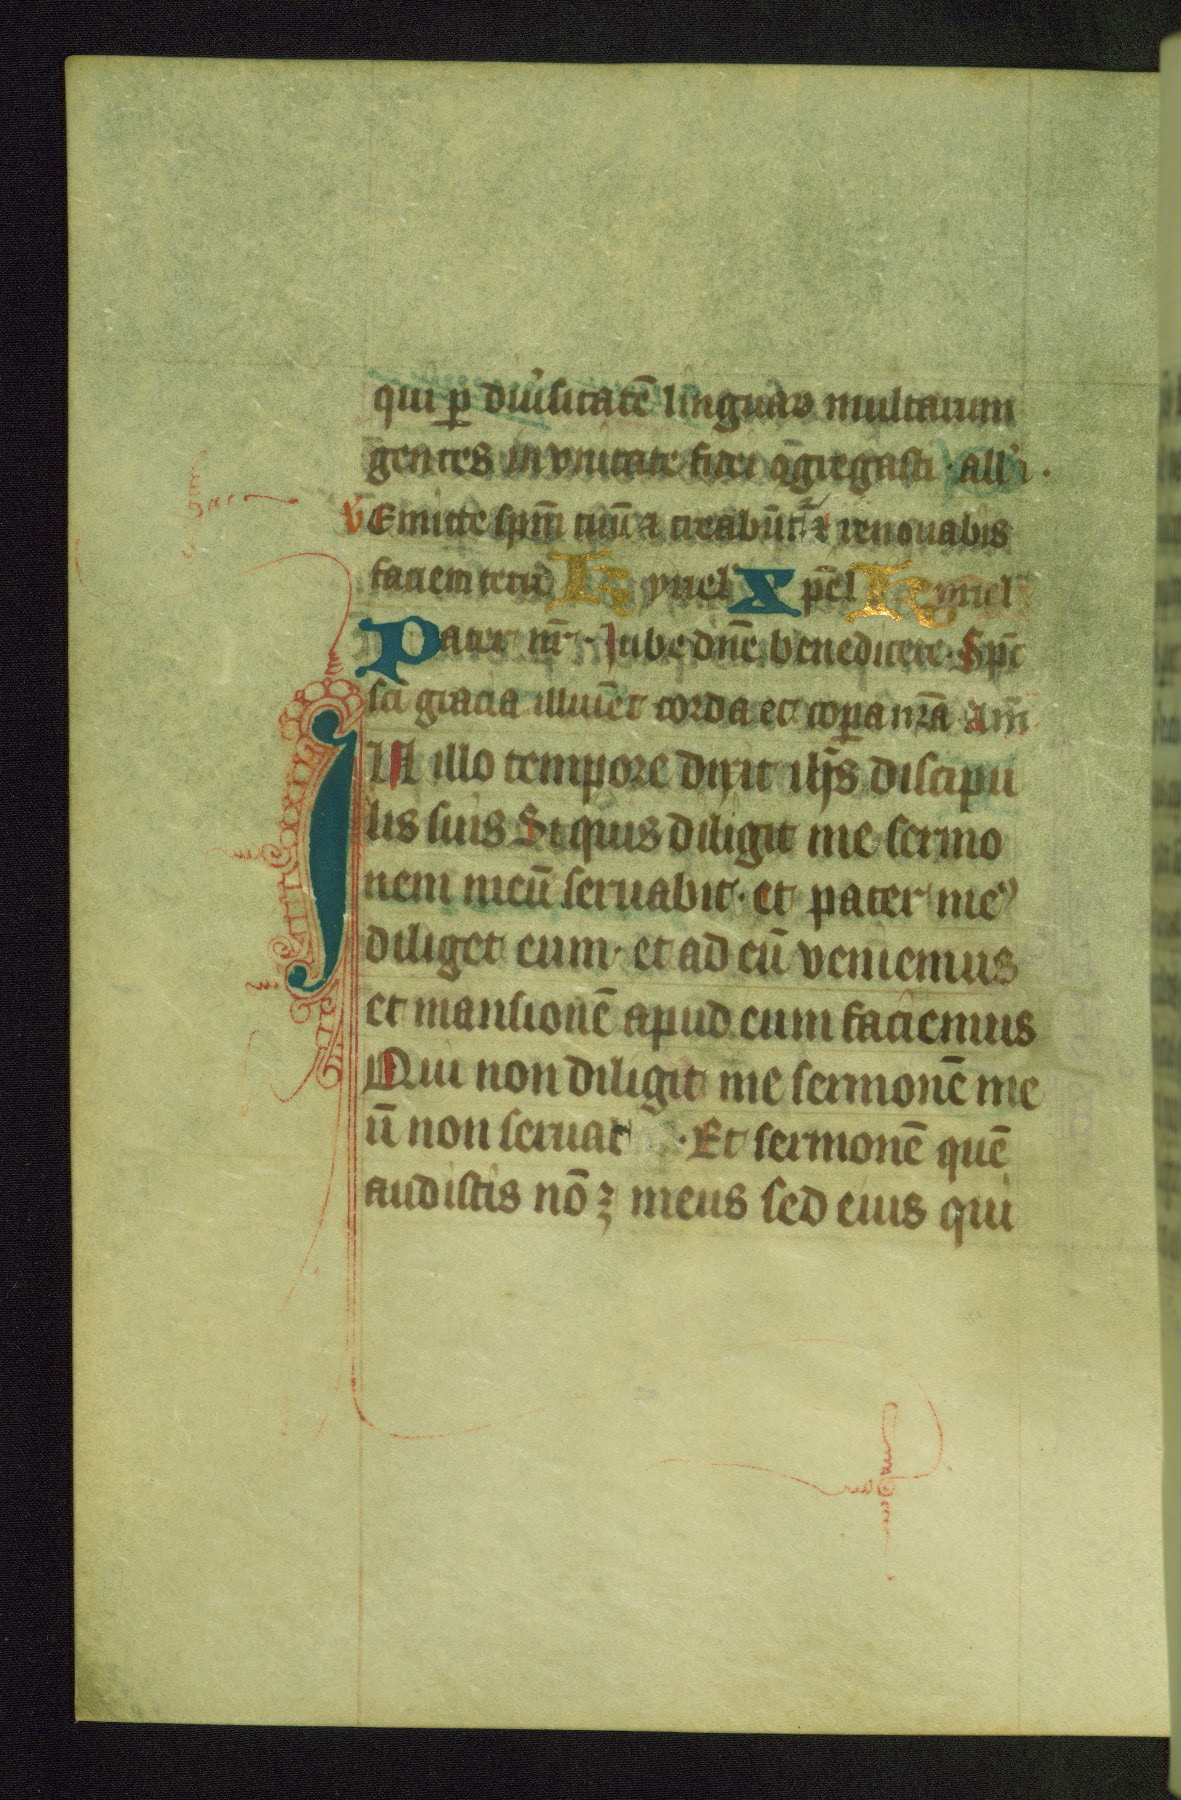 qui p̱ diu̾sitatē linguaꝝ multarum
gentes in vnitate fidei ꝯ̄gregasti · all̾a ·
v̄ Emitte sp̄m tuū ⁊ creabūt̾ ⁊ renouabis
faciem terre Kyriel̾ Xp̄el Kyriel
Pater nr̄ · Iube dn̄e benedicere · Sp̄c
sci gracia illuīet corda et corꝑa nr̄a am̄
IN illo tempore dixit ih̄s discipu
lis suis Si quis diligit me sermo
nem meū seruabit · et pater meꝰ
diliget eum · et ad eū veniemus
et mansionē apud eum faciemus
Qui non diligit me sermonē me
ū non seruat · Et sermonē quē
audistis nō ꝫ meus sed eius qui